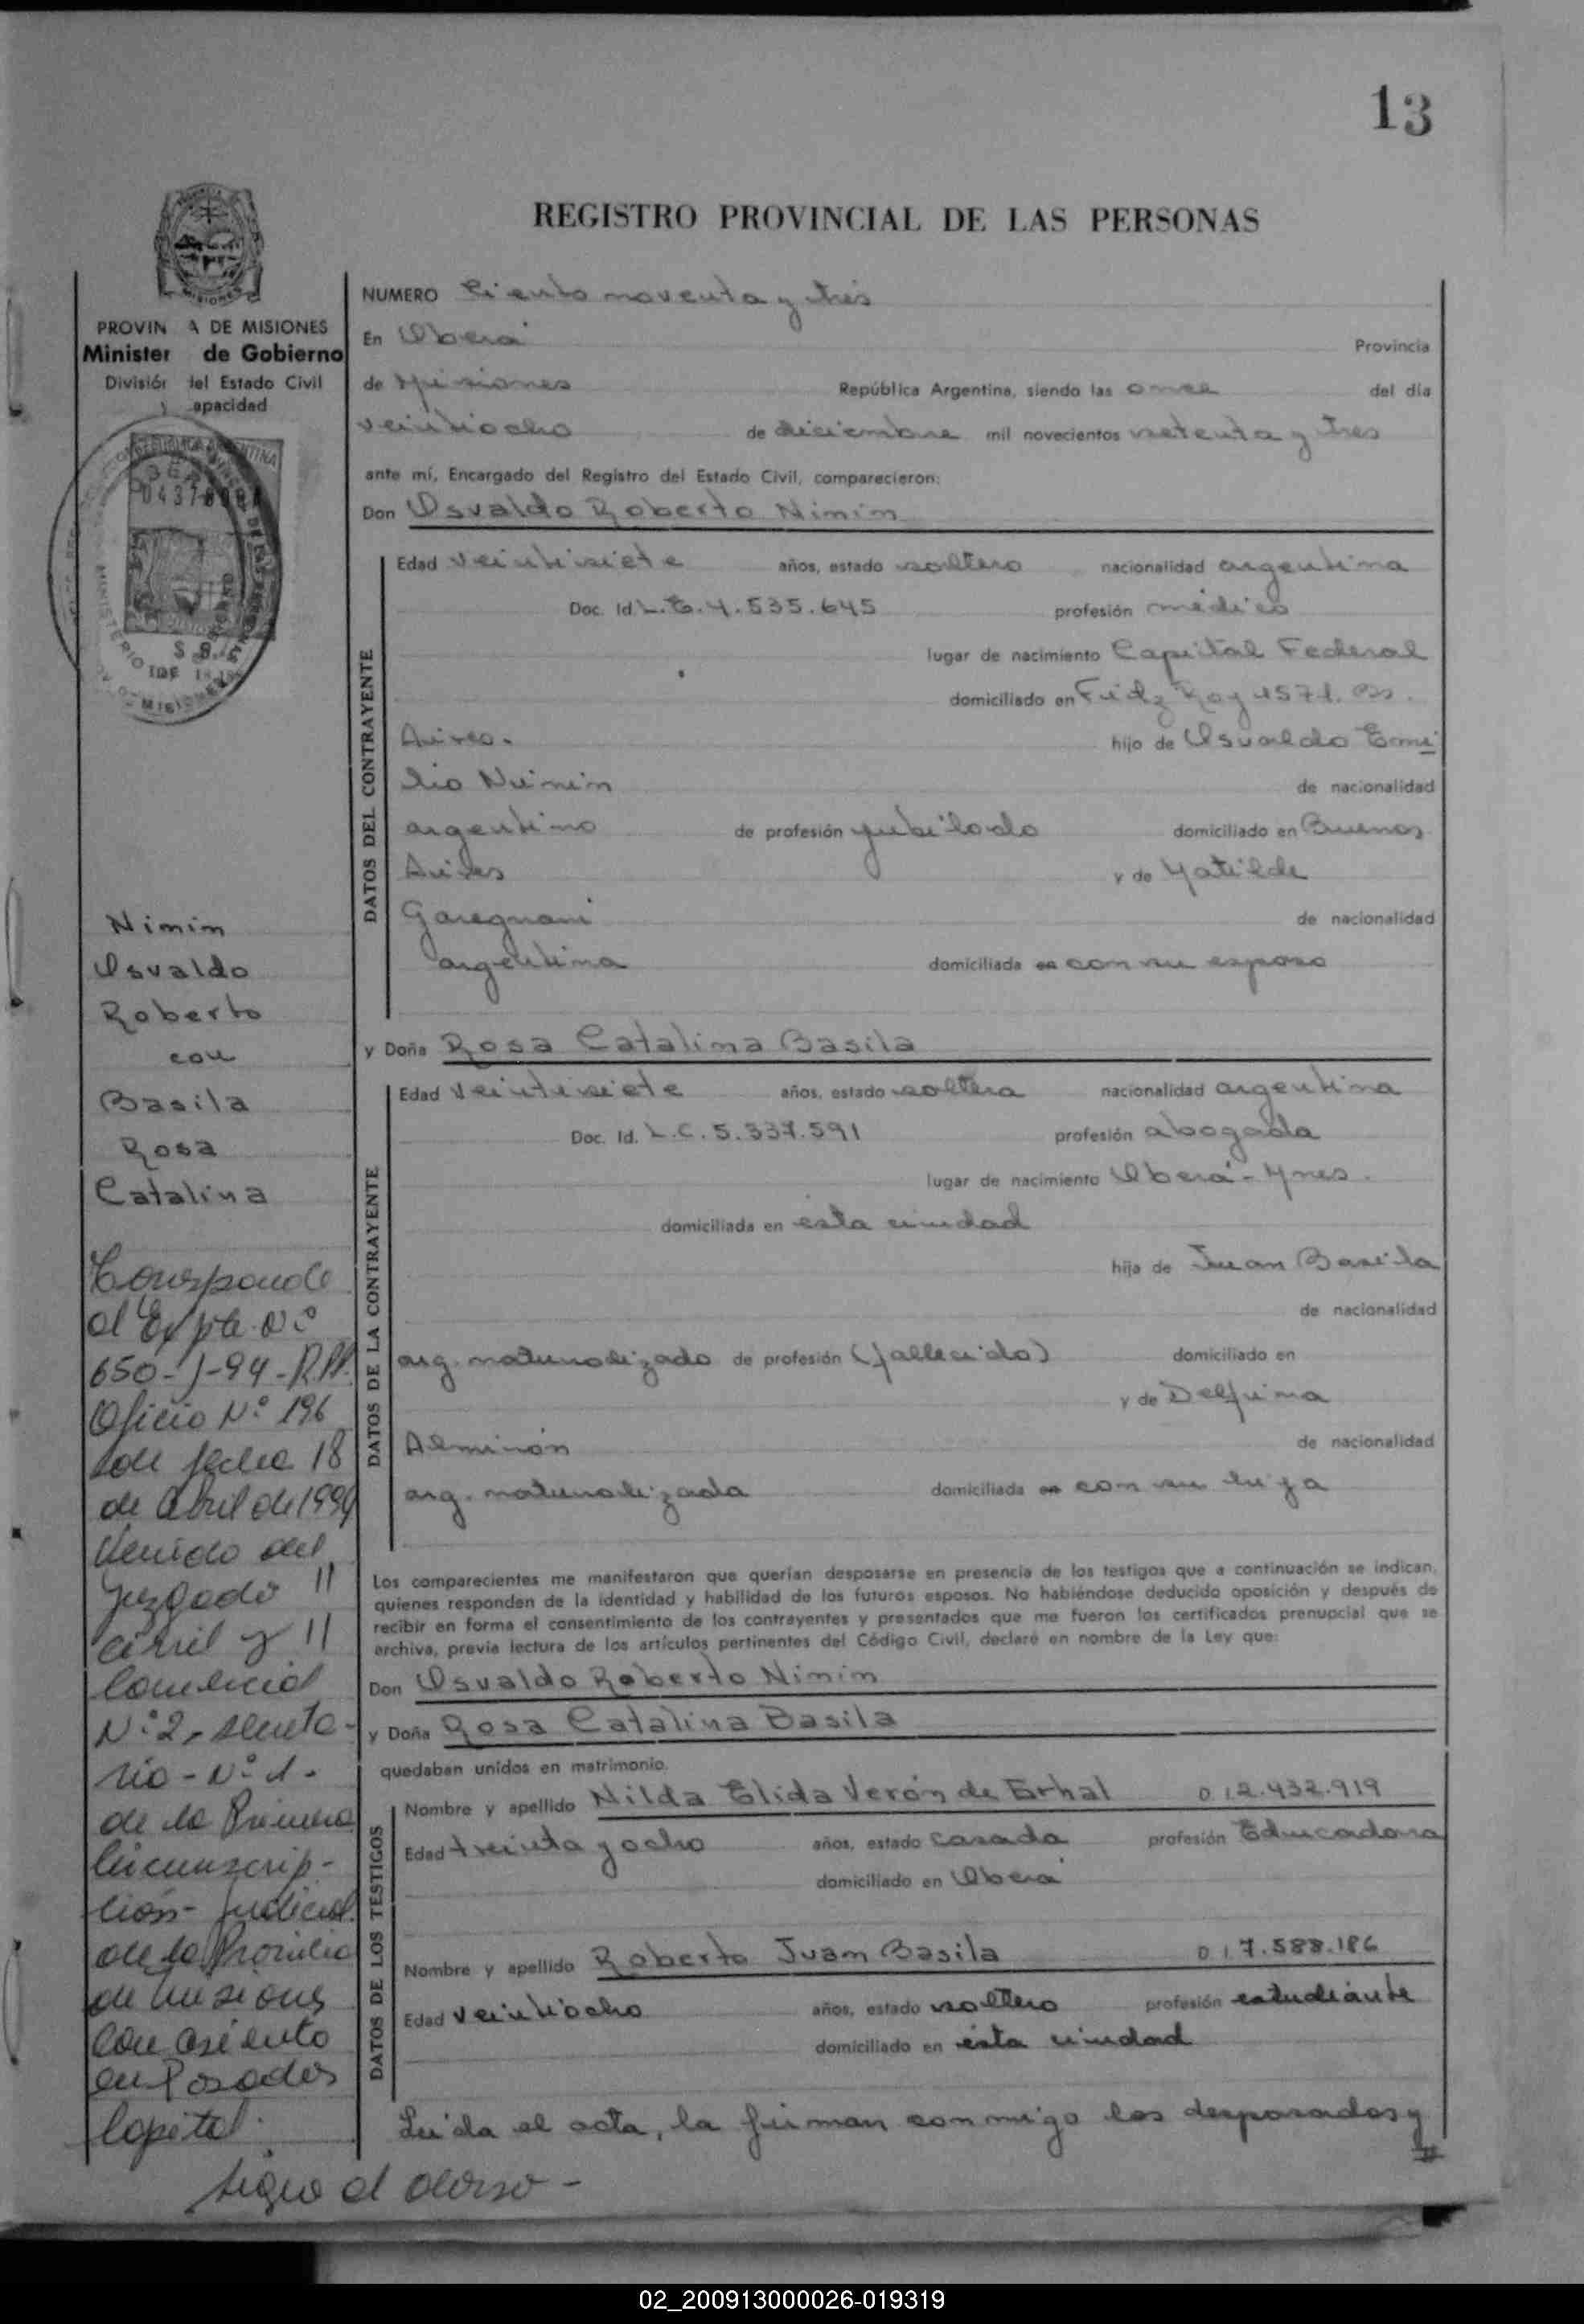 13
REGISTRO PROVINCIAL DE LAS PERSONAS
PROVIN A DE MISIONES
Minister de Gobierno
División del Estado Civil
y apacidad
REPUBLICA ARGENTINA
MINISTERIO DE
MISIONES
NUMERO Ciento noventa y tres
En Oberá Provincia
de Misiones República Argentina, siendo las once del día
veintiocho de diciembre mil novecientos setenta y tres
ante mí, Encargado del Registro del Estado Civil, comparecieron:
Don Osvaldo Roberto Nimin
DATOS DEL CONTRAYENTE
Edad veintisiete años, estado soltero nacionalidad argentina
Doc. Id. L.E. 4.535.645 profesión médico
lugar de nacimiento Capital Federal
domiciliado en Fitz Roy 1571. Bs.
Aires. hijo de Osvaldo Emi
lio Nimin de nacionalidad
argentino de profesión jubilado domiciliado en Buenos
Aires y de Matilde
Garegnani de nacionalidad
argentina domiciliada en con su esposo
y Doña Rosa Catalina Basila
DATOS DE LA CONTRAYENTE
Edad veintisiete años, estado soltera nacionalidad argentina
Doc. Id. L.C. 5.337.591 profesión abogada
lugar de nacimiento Oberá - Mnes.
domiciliada en esta ciudad
hija de Juan Basila
de nacionalidad
arg. naturalizado de profesión (fallecido) domiciliado en
y de Delfina
Almirón de nacionalidad
arg. naturalizada domiciliada en con su hija
Los comparecientes me manifestaron que querían desposarse en presencia de los testigos que a continuación se indican,
quienes responden de la identidad y habilidad de los futuros esposos. No habiéndose deducido oposición y después de
recibir en forma el consentimiento de los contrayentes y presentados que me fueron los certificados prenupcial que se
archiva, previa lectura de los artículos pertinentes del Código Civil, declaré en nombre de la Ley que:
Don Osvaldo Roberto Nimin
y Doña Rosa Catalina Basila
quedaban unidos en matrimonio.
DATOS DE LOS TESTIGOS
Nombre y apellido Nilda Elida Verón de Erhal D I 2.432.919
Edad treinta y ocho años, estado casada profesión Educadora
domiciliado en Oberá
Nombre y apellido Roberto Juan Basila D I 7.588.186
Edad veintiocho años, estado soltero profesión estudiante
domiciliado en esta ciudad
Leída el acta, la firman conmigo los desposados y
Nimin
Osvaldo
Roberto
con
Basila
Rosa
Catalina
Corresponde
al Expte. Nº
650-J-94-R.PP.
Oficio Nº 196
de fecha 18
de abril de 1994
Venido del
Juzgado
civil y
Comercial
Nº 2, secreta-
rio - Nº 1.
de la Primera
Circunscrip-
ción Judicial
de la Provincia
de Misiones
con asiento
en Posadas
Capital.
sigue al dorso -
02_200913000026-019319